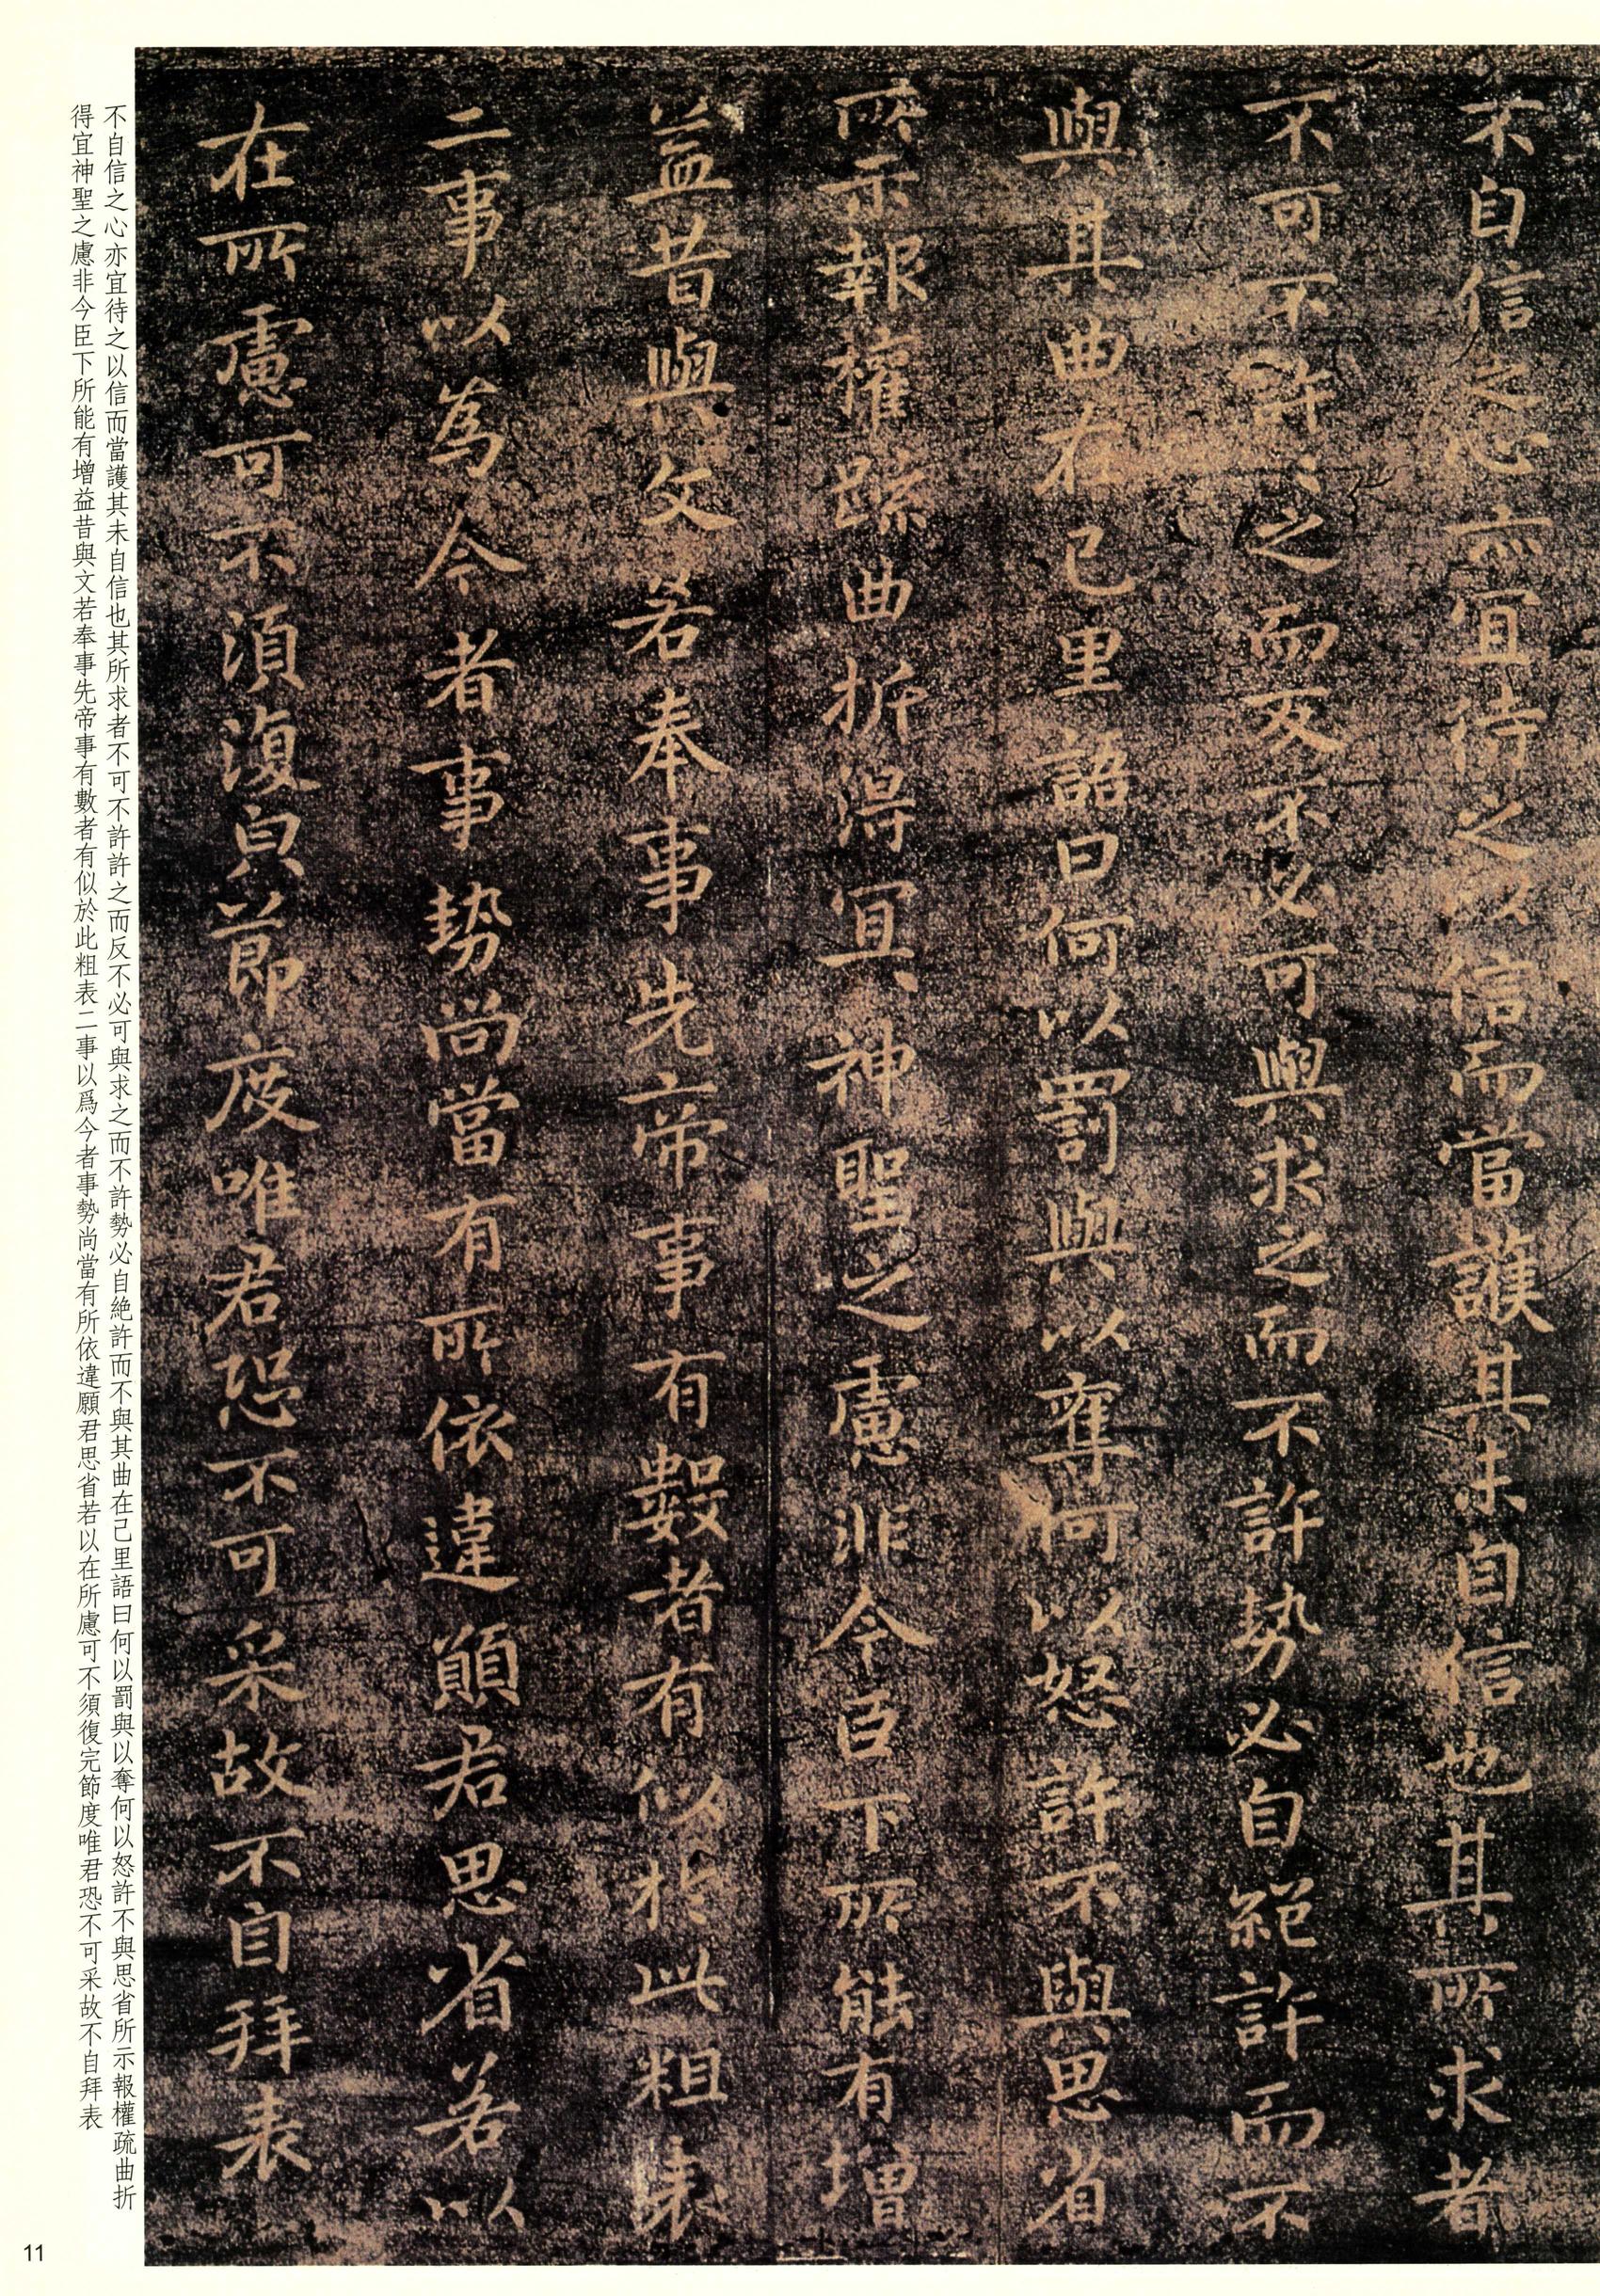 不自信之心亦宜待之以信而當護其未自信也其所求者
不可不許許之而反不必可與求之而不許勢必自絕許而不
與其曲在己里語曰何以罰與以奪何以怒許不與思省
所示報權疏曲折得宜神聖之慮非今臣下所能有增
益昔與文若奉事先帝事有數者有似於此粗表
二事以為今者事勢尚當有所依違願君思省若以
在所慮可不須復自節度唯君恐不可采故不自拜表
不自信之心亦宜待之以信而當護其未自信也其所求者不可不許許之而反不必可與求之而不許勢必自絶許而不與其曲在己里語曰何以罰與以奪何以怒許不與思省所示報權疏曲折
得宜神聖之慮非今臣下所能有增益昔與文若奉事先帝事有數者有似於此粗表二事以爲今者事勢尚當有所依違願君思省若以在所慮可不須復完節度唯君恐不可采故不自拜表
11